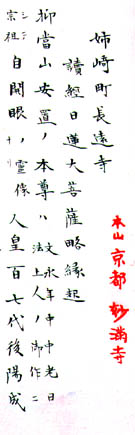 本山 京都 妙満寺
姉崎町長遠寺
讀經日蓮大菩薩略縁起
抑當山安置ノ本尊ハ
文永年中中老日
上人ノ御作ニ
宗祖
自開眼ノ霊像
人皇百七代後陽成